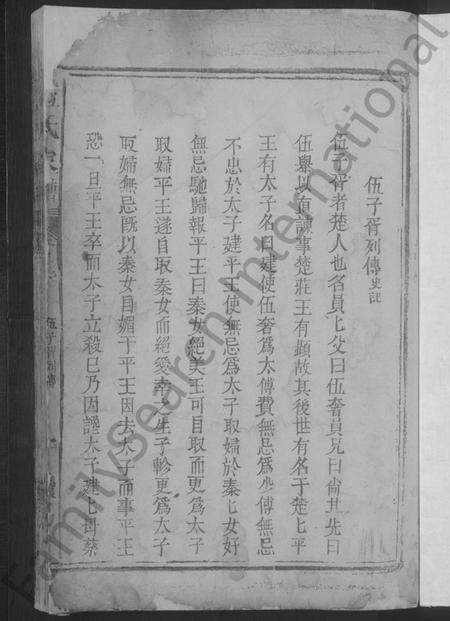 伍子胥列傳 史記
伍子胥者楚人也名員匕父曰伍奢員兄曰尚其先曰
伍舉以直諫事楚莊王有顯故其後世有名于楚匕平
王有太子名曰建使伍奢爲太傅費無忌爲少傅無忌
不忠於太子建平王使無忌爲太子取婦於秦匕女好
無忌馳歸報平王曰秦女絕美王可自取而更爲太子
取婦平王遂自取秦女而絕愛幸之生子軫更爲太子
取婦無忌既以秦女自媚于平王因去太子而事平王
恐一旦平王卒而太子立殺已乃因譖太子建匕母蔡
氏
伍子胥列傳
FamilySearch International